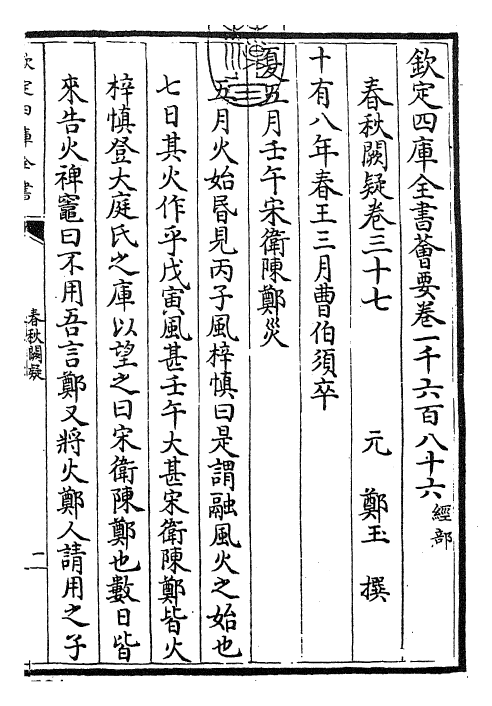 欽定四庫全書薈要卷一千六百八十六經部
春秋闕疑卷三十七 元 鄭玉 撰
十有八年春王三月曹伯須卒
夏五月壬午宋衛陳鄭災
五月火始昏見丙子風梓慎曰是謂融風火之始也
七日其火作乎戊寅風甚壬午大甚宋衛陳鄭皆火
梓慎登大庭氏之庫以望之曰宋衛陳鄭也數日皆
來告火裨竈曰不用吾言鄭又將火鄭人請用之子
欽定四庫全書
春秋闕疑
二